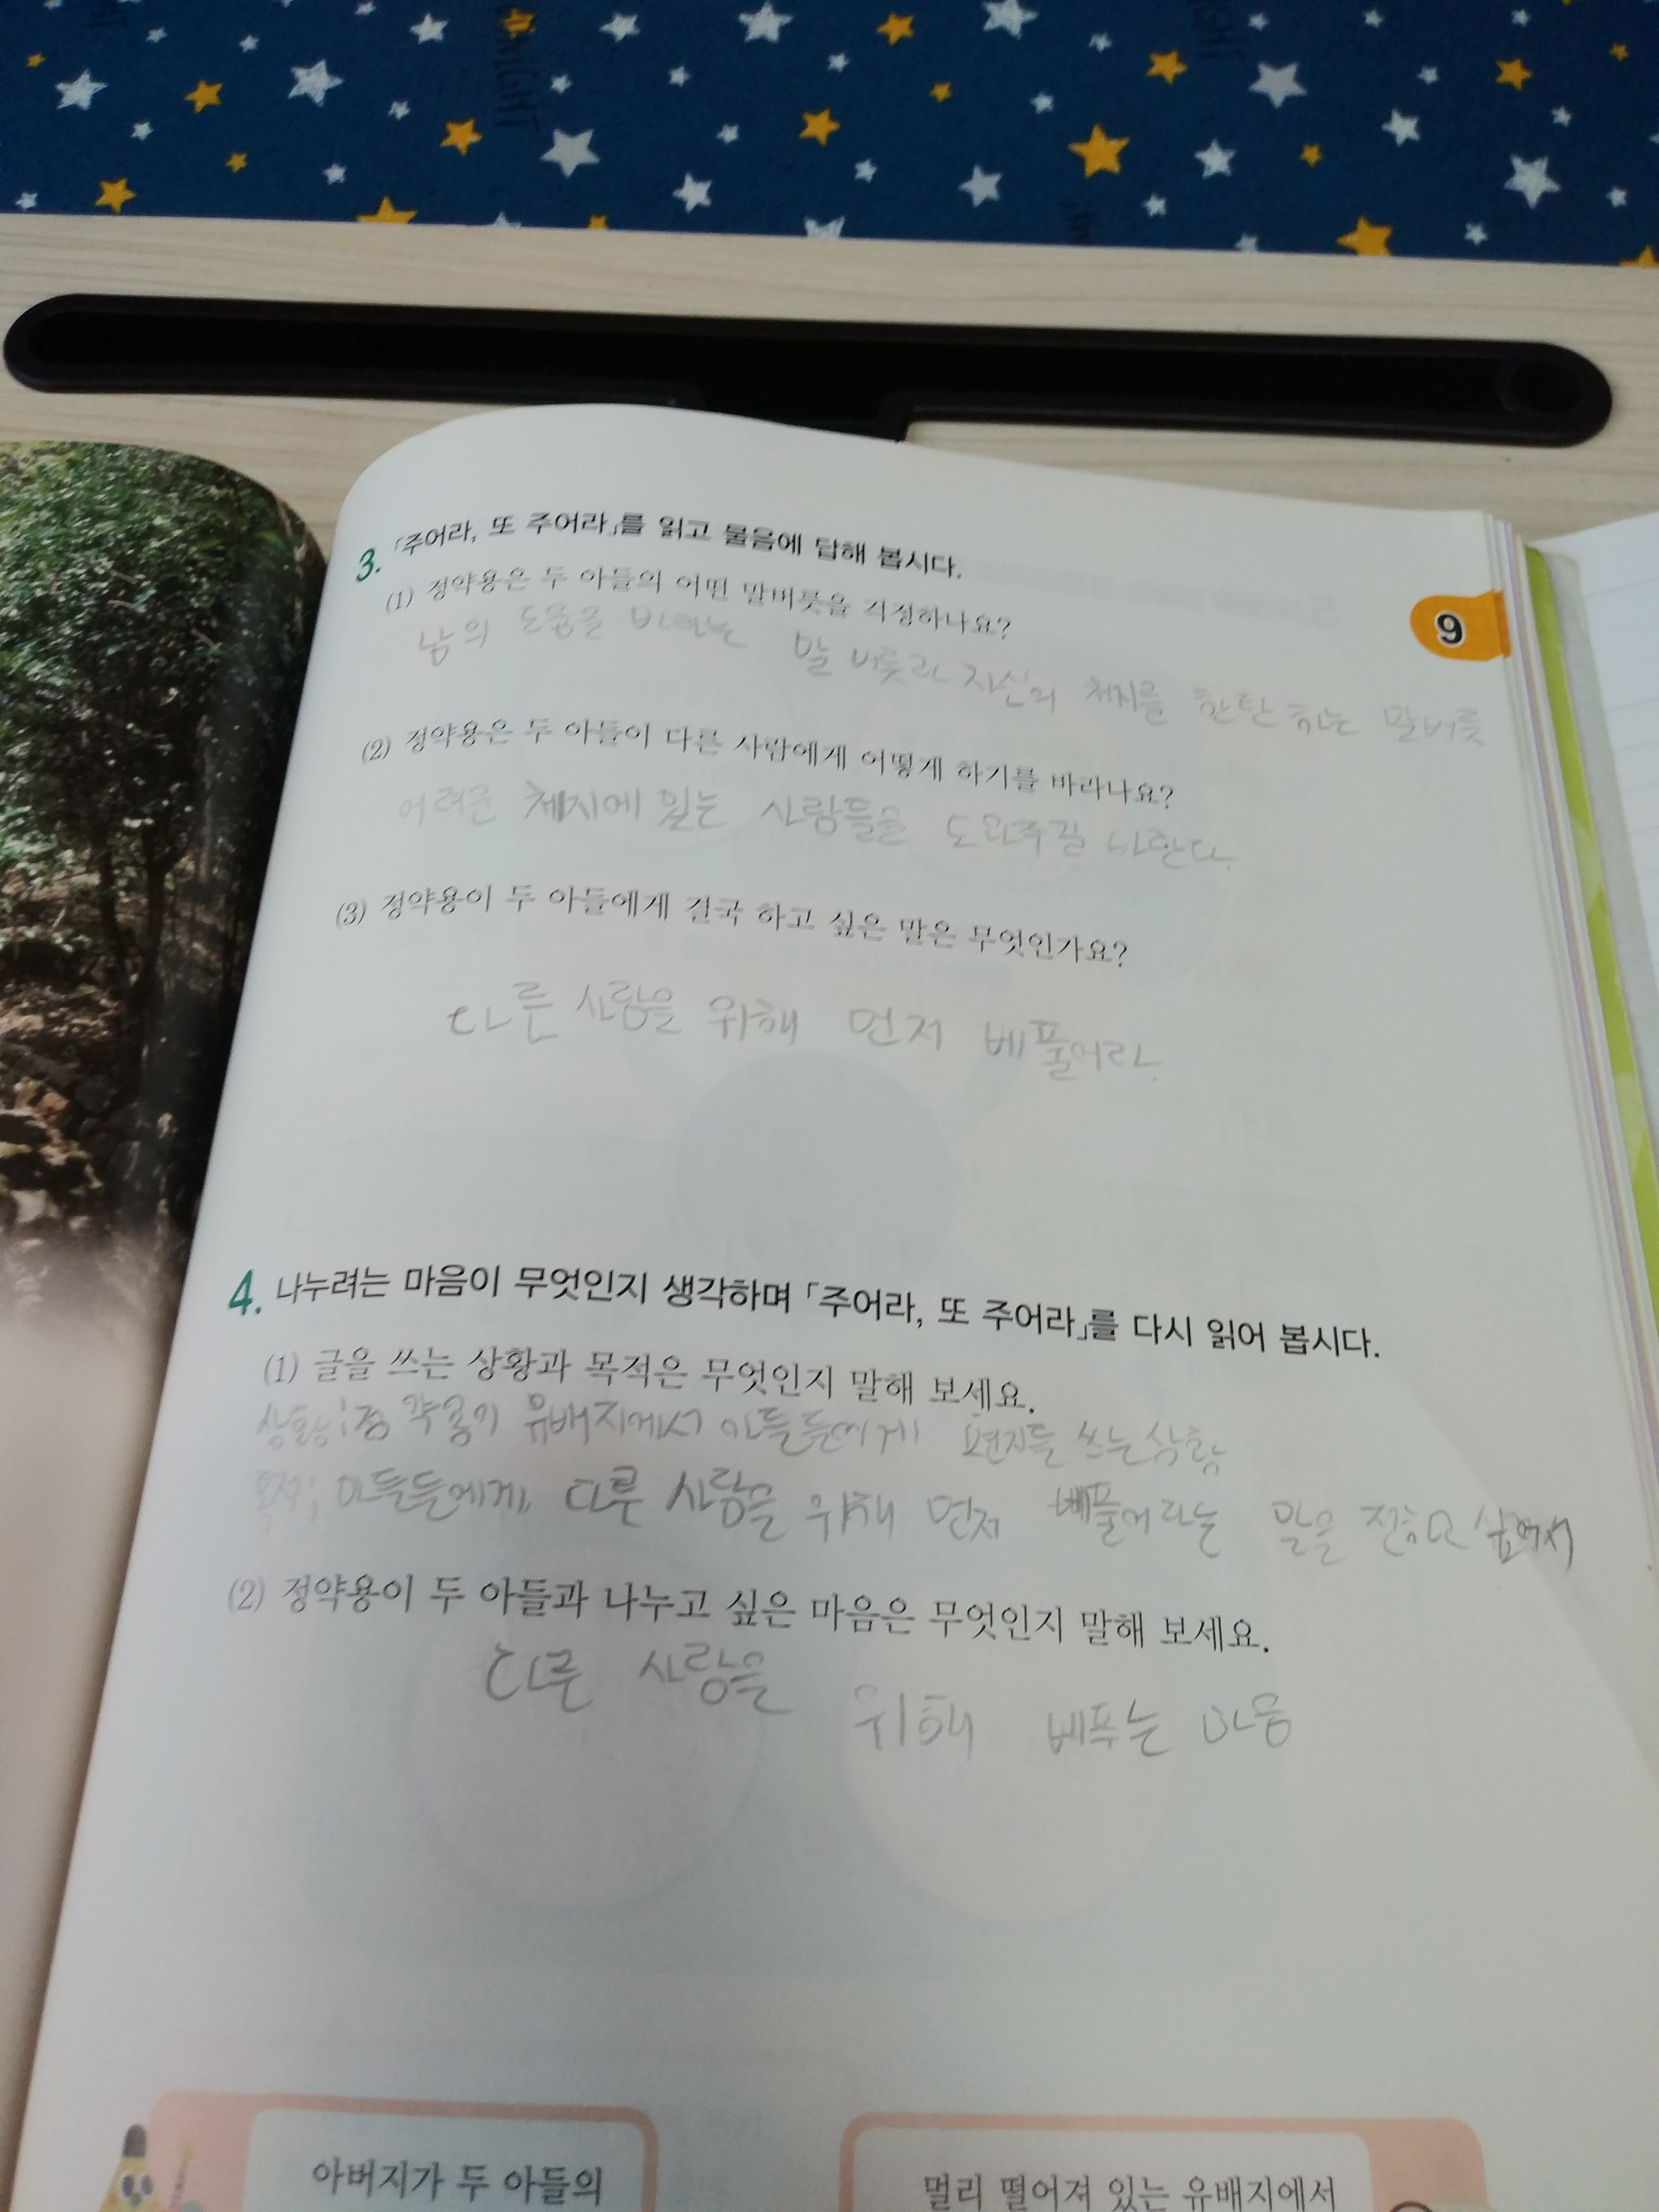 3. 「주어라, 또 주어라」를 읽고 물음에 답해 봅시다.
(1) 정약용은 두 아들의 어떤 말버릇을 걱정하나요?
남의 도움을 바라는 말 버릇과 자신의 처지를 한탄 하는 말버릇
9
(2) 정약용은 두 아들이 다른 사람에게 어떻게 하기를 바라나요?
어려운 체지에 있는 사람들을 도와주길 바란다.
(3) 정약용이 두 아들에게 결국 하고 싶은 말은 무엇인가요?
다른 사람을 위해 먼저 베풀어라.
4. 나누려는 마음이 무엇인지 생각하며 「주어라, 또 주어라」를 다시 읽어 봅시다.
(1) 글을 쓰는 상황과 목적은 무엇인지 말해 보세요.
상황; 정약용이 유배지에서 아들들에게 편지를 쓰는 상황
목적; 아들들에게, 다른 사람을 위해 먼저 베풀어라는 말을 전하고 싶어서
(2) 정약용이 두 아들과 나누고 싶은 마음은 무엇인지 말해 보세요.
다른 사람을 위해 베푸는 마음
아버지가 두 아들의
멀리 떨어져 있는 유배지에서